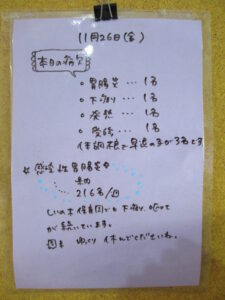 11月26日(金)
本日の病欠
○ 胃腸炎 … 1名
○ 下痢 … 1名
○ 発熱 … 1名
○ 腹痛 … 1名
体調不良で早退の子が3名です
☆ 感染性胃腸炎
県内
216名/
しいの木保育園でも下痢、
が続いています。
ゆっくり休んでくださいね。